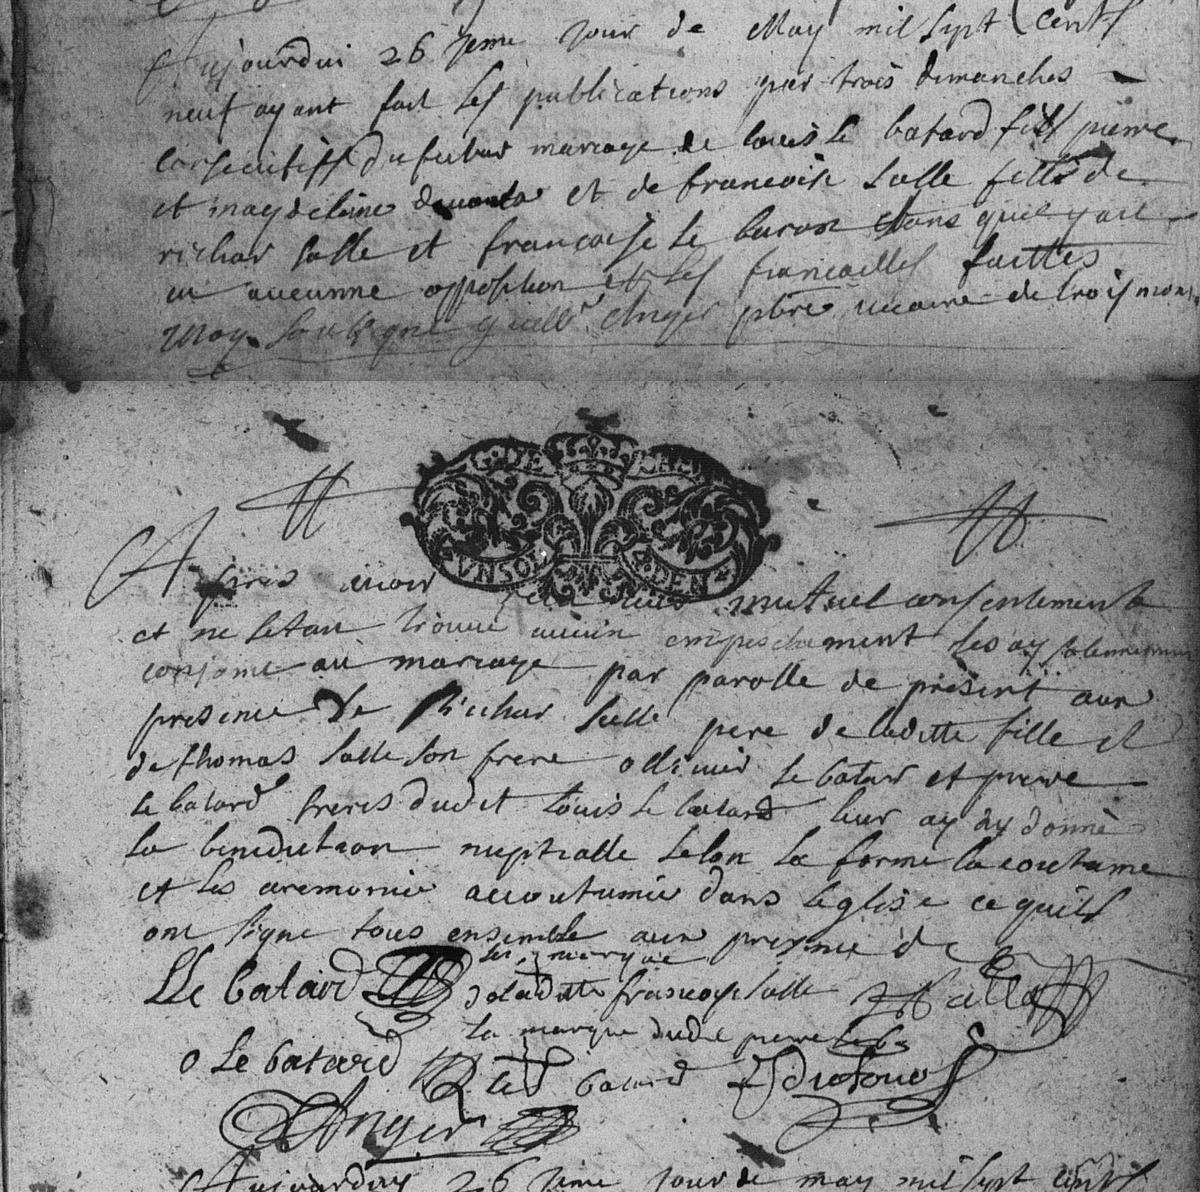 Aujourdui 26 jeme jour de May mil sept cents
neuf ayant fait les publications par trois dimanches
consecutifs du futur mariage de louis le batard fils pierre
et magdeleine et de francoise salle fille de
richar salle et francoise le baron sans quil y ait
eu aucunne opposition et les fiancailles faittes
moy soubsigné Anger pbre vicaire de trois mons
G. DE CAEN
VN SOL 4. DEN
Apres avoir mutuel consentement
et ne setan trouvé aucun empeschement les ay solennellement
conjoinc au mariage par parolle de present aux
presence de Richar salle pere de laditte fille et
de thomas salle son frere ollivier le batar et pierre
le batard freres dudit louis le batard leur ay donné
la benediction nuptialle selon la forme la coutume
et les ceremonie accoutumée dans leglise ce quils
ont signe tous ensemble aux presence de
LLe batard la marque
de laditte francoise salle
la marque dudit pierre le
o Le batard batard
Anger
Aujourduy 26 jeme jour de may mil sept cents